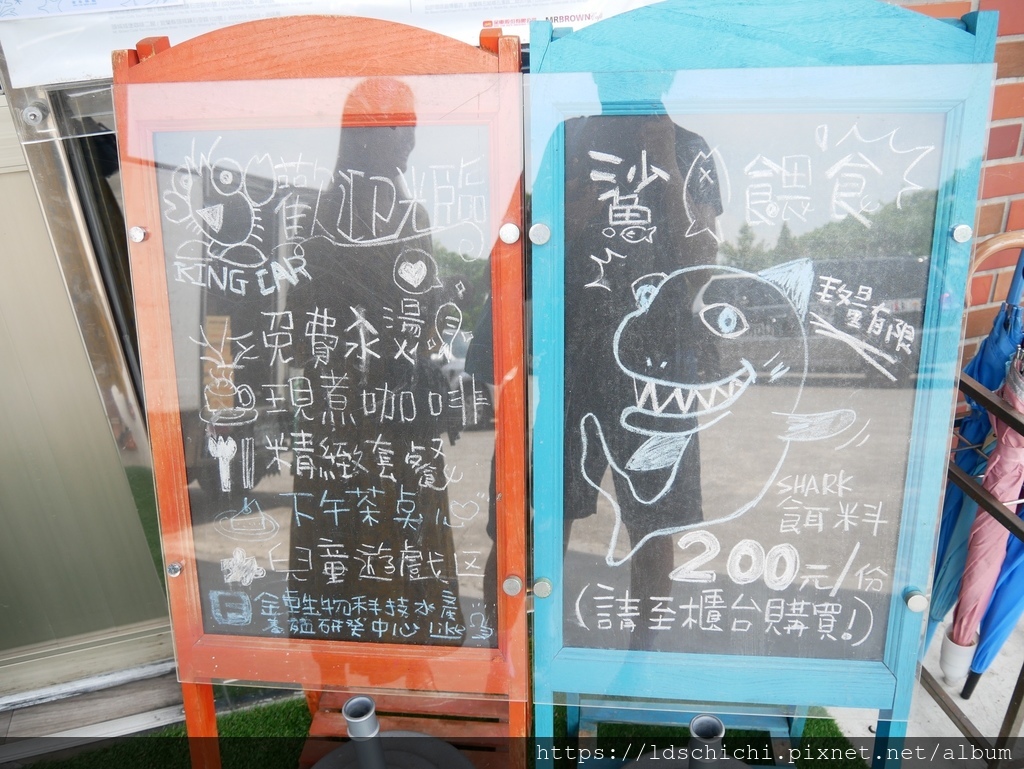 MRBROWN
歡迎光臨
KING CAR
免費冰湯
現煮咖啡
精緻套餐
下午茶桌心
兒童遊戲区
金車生物科技水產
基
研發中心 like
鯊魚餵食
數量有限
SHARK
餌料
200元/份
(請至櫃台購買!)
https://ldschichi.pixnet.net/album